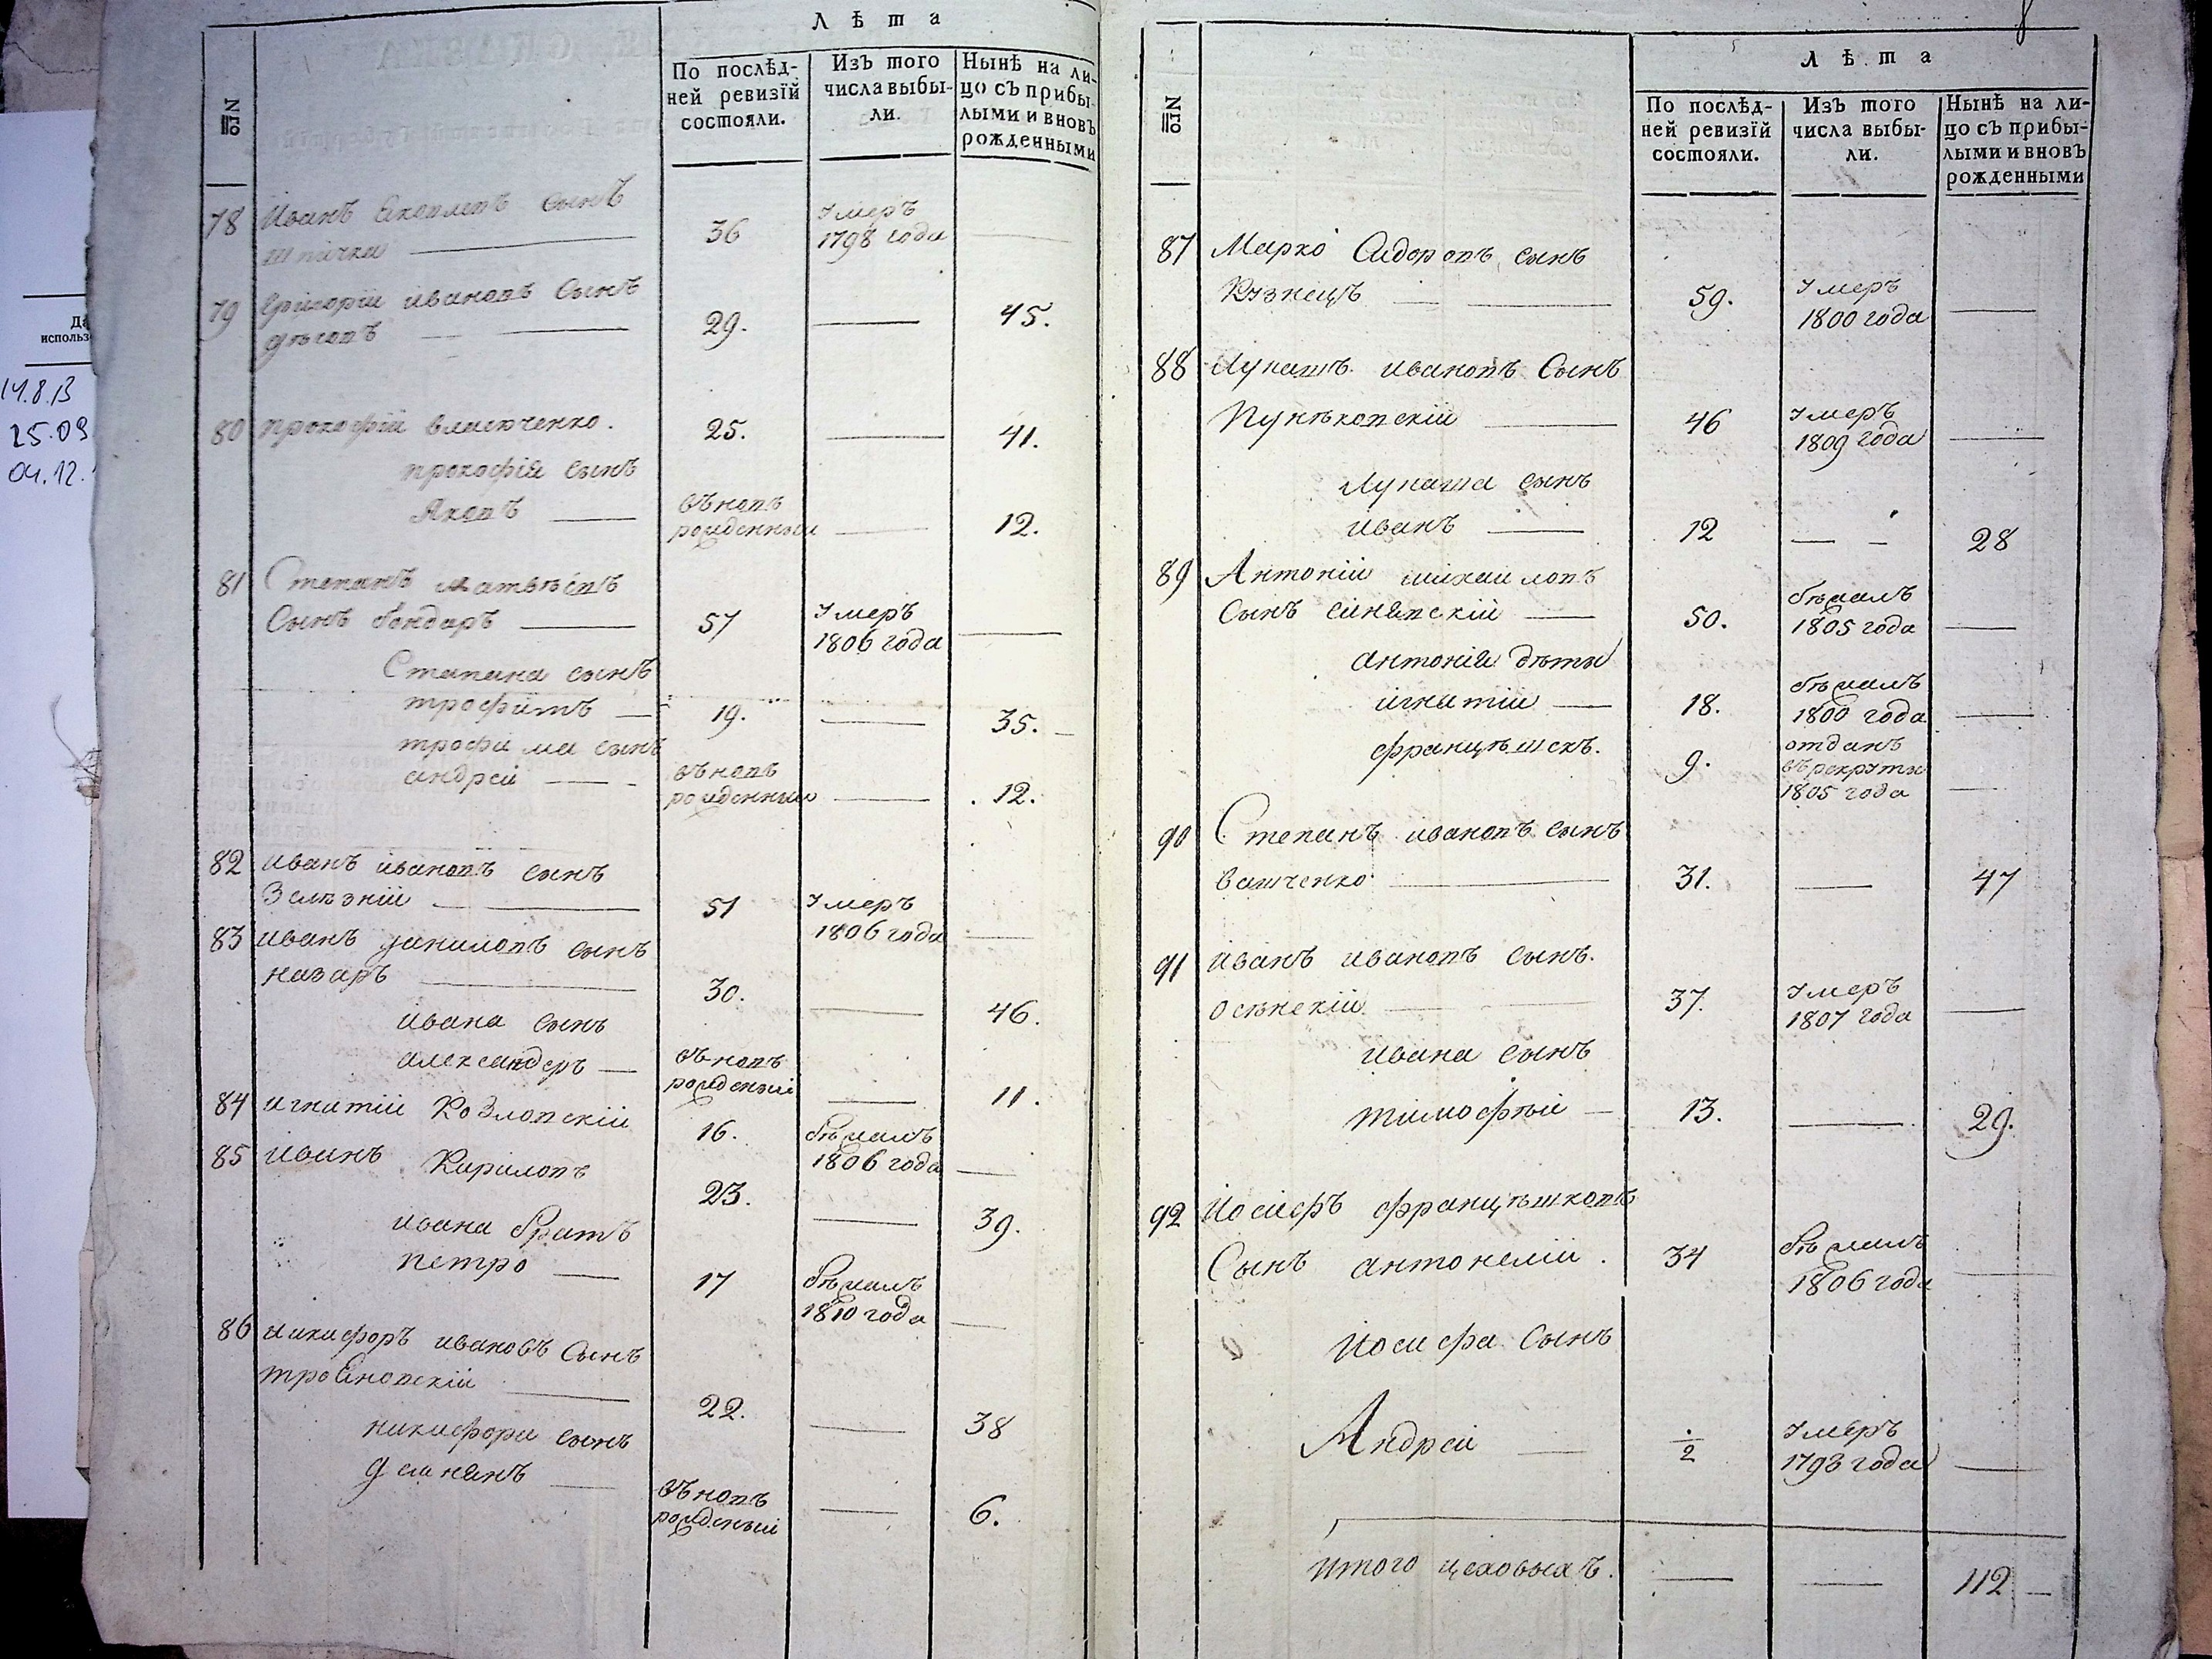 Лѣта
№
По послѣд-
ней ревизїй
состояли.
Изъ того
числа выбы-
ли.
Нынѣ на ли-
цо съ прибы-
лыми и вновь
рожденными
78 Иванъ Яковлевъ сынъ
шпичка — 36 умеръ
1798 года —
79 Григорій Ивановъ Сынъ
— 29. — 45.
80 прокофій власюченко. 25. — 41.
прокофія сынъ
Яковъ — вновъ
рожденный — 12.
81 Степанъ матвѣевъ
Сынъ бондаръ — 57 умеръ
1806 года —
Степана сынъ
трофимъ — 19. — 35.
трофима сынъ
андрей — вновъ
рожденный — 12.
82 иванъ ивановъ сынъ
Зелѣзній — 51 умеръ
1806 года —
83 иванъ даниловъ сынъ
назаръ — 30. — 46.
ивана сынъ
александеръ — вновъ
рожденый — 11.
84 игнатій Козловскій 16. бѣжалъ
1806 года —
85 иванъ Кириловъ 23. — 39.
ивана братъ
петро — 17 бѣжалъ
1810 года —
86 никифоръ ивановъ Сынъ
трояновскій — 22. — 38
никифора сынъ
демянъ — вновъ
рожденый — 6.
8
Лѣта
№
По послѣд-
ней ревизїй
состояли.
Изъ того
числа выбы-
ли.
Нынѣ на ли-
цо съ прибы-
лыми и вновь
рожденными
87 Марко Сидоровъ сынъ
Кузнецъ — 59. умеръ
1800 года —
88 Лукашъ ивановъ Сынъ
Пунъковскій — 46 умеръ
1809 года —
Лукаша сынъ
иванъ — 12 — 28
89 Антоній михайловъ
Сынъ синявскій — 50. бѣжалъ
1805 года —
антонія дѣты
игнатій — 18. бѣжалъ
1800 года —
францѣшекъ. 9. отданъ
въ рекруты
1805 года —
90 Степанъ ивановъ сынъ
ващенко — 31. — 47
91 иванъ ивановъ сынъ.
осѣнскій — 37. умеръ
1807 года —
ивана сынъ
тимофѣй — 13. — 29.
92 Иосифъ францѣшковъ
Сынъ антонелій. 34 бѣжалъ
1806 года —
Иосифа сынъ
Андрей — 2 умеръ
1798 года —
итого цеховыхъ. — — 112
да
использ
14.8.13
25.09
04.12.